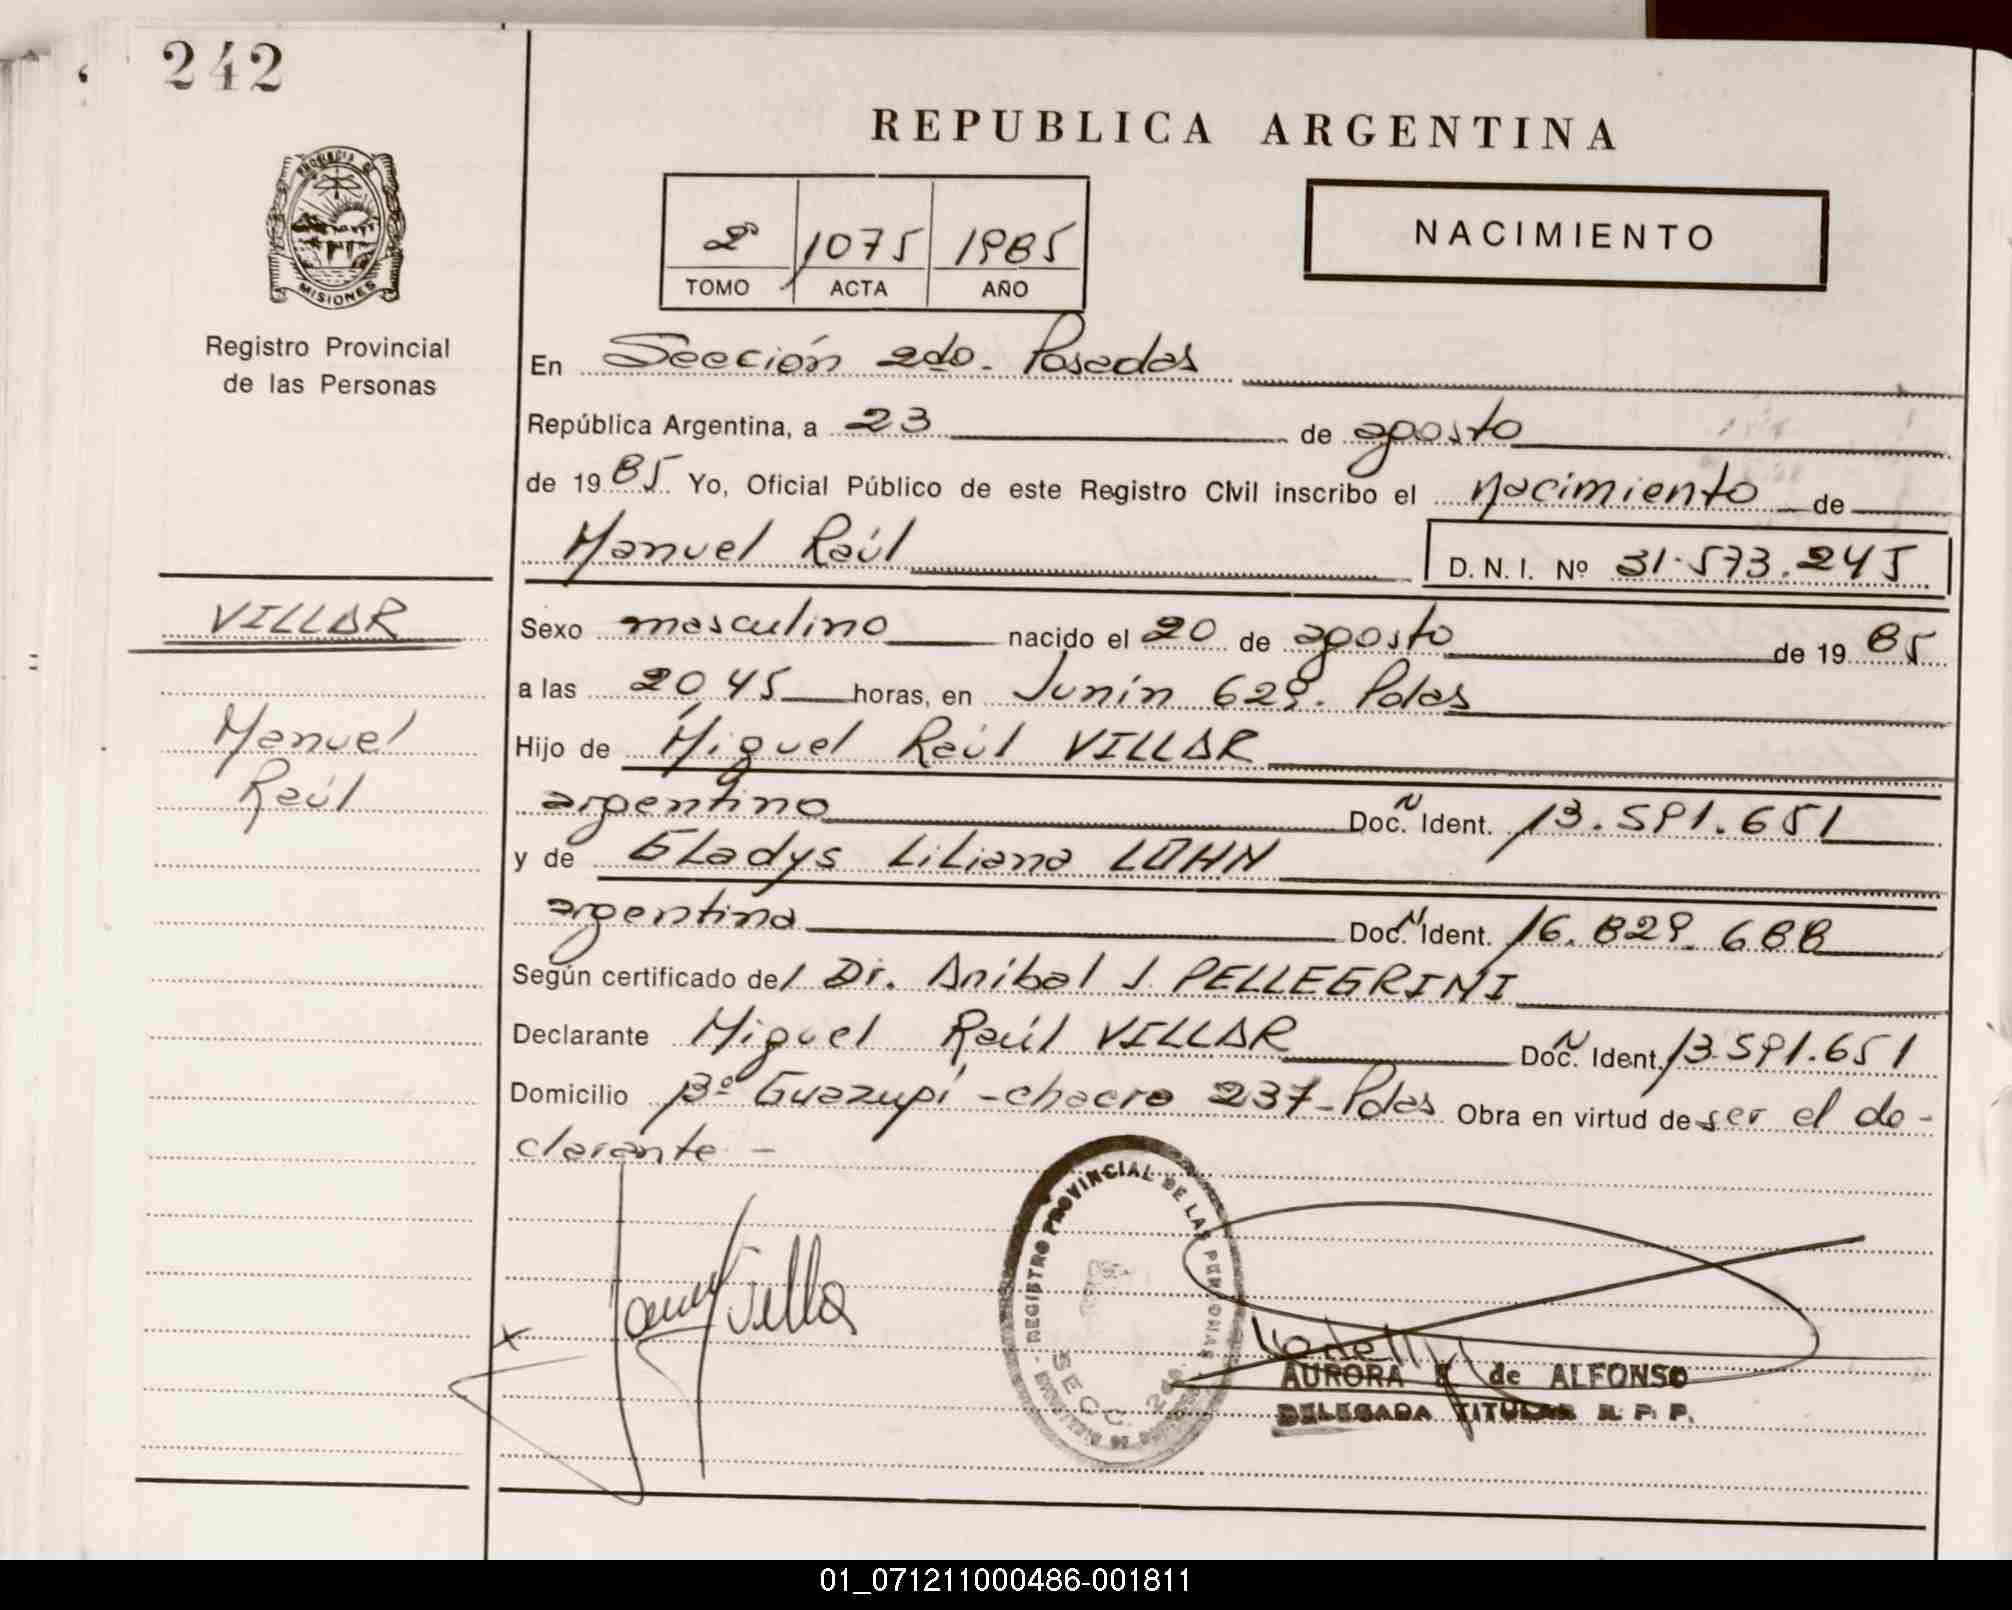 242
REPUBLICA ARGENTINA
PROVINCIA DE
MISIONES
Registro Provincial
de las Personas
2º 1075 1985
TOMO ACTA AÑO
NACIMIENTO
En Sección 2da. Posadas
República Argentina, a 23 de agosto
de 1985 Yo, Oficial Público de este Registro Civil inscribo el nacimiento de
Manuel Raúl D. N. I. Nº 31.573.245
VILLAR
Manuel
Raúl
Sexo masculino nacido el 20 de agosto de 1985
a las 20,45 horas, en Junín 629. Pdas
Hijo de Miguel Raúl VILLAR
argentino Doc. N Ident. 13.591.651
y de Gladys Liliana LOHN
argentina Doc. N Ident. 16.829.688
Según certificado del Dr. Anibal J. PELLEGRINI
Declarante Miguel Raúl VILLAR Doc. N Ident. 13.591.651
Domicilio Bº Guazupí - chacra 237 - Pdas Obra en virtud de ser el de-
clarante -
REGISTRO PROVINCIAL DE LAS PERSONAS
SECC. 2da.
x
AURORA de ALFONSO
DELEGADA TITULAR R. P. P.
01_071211000486-001811